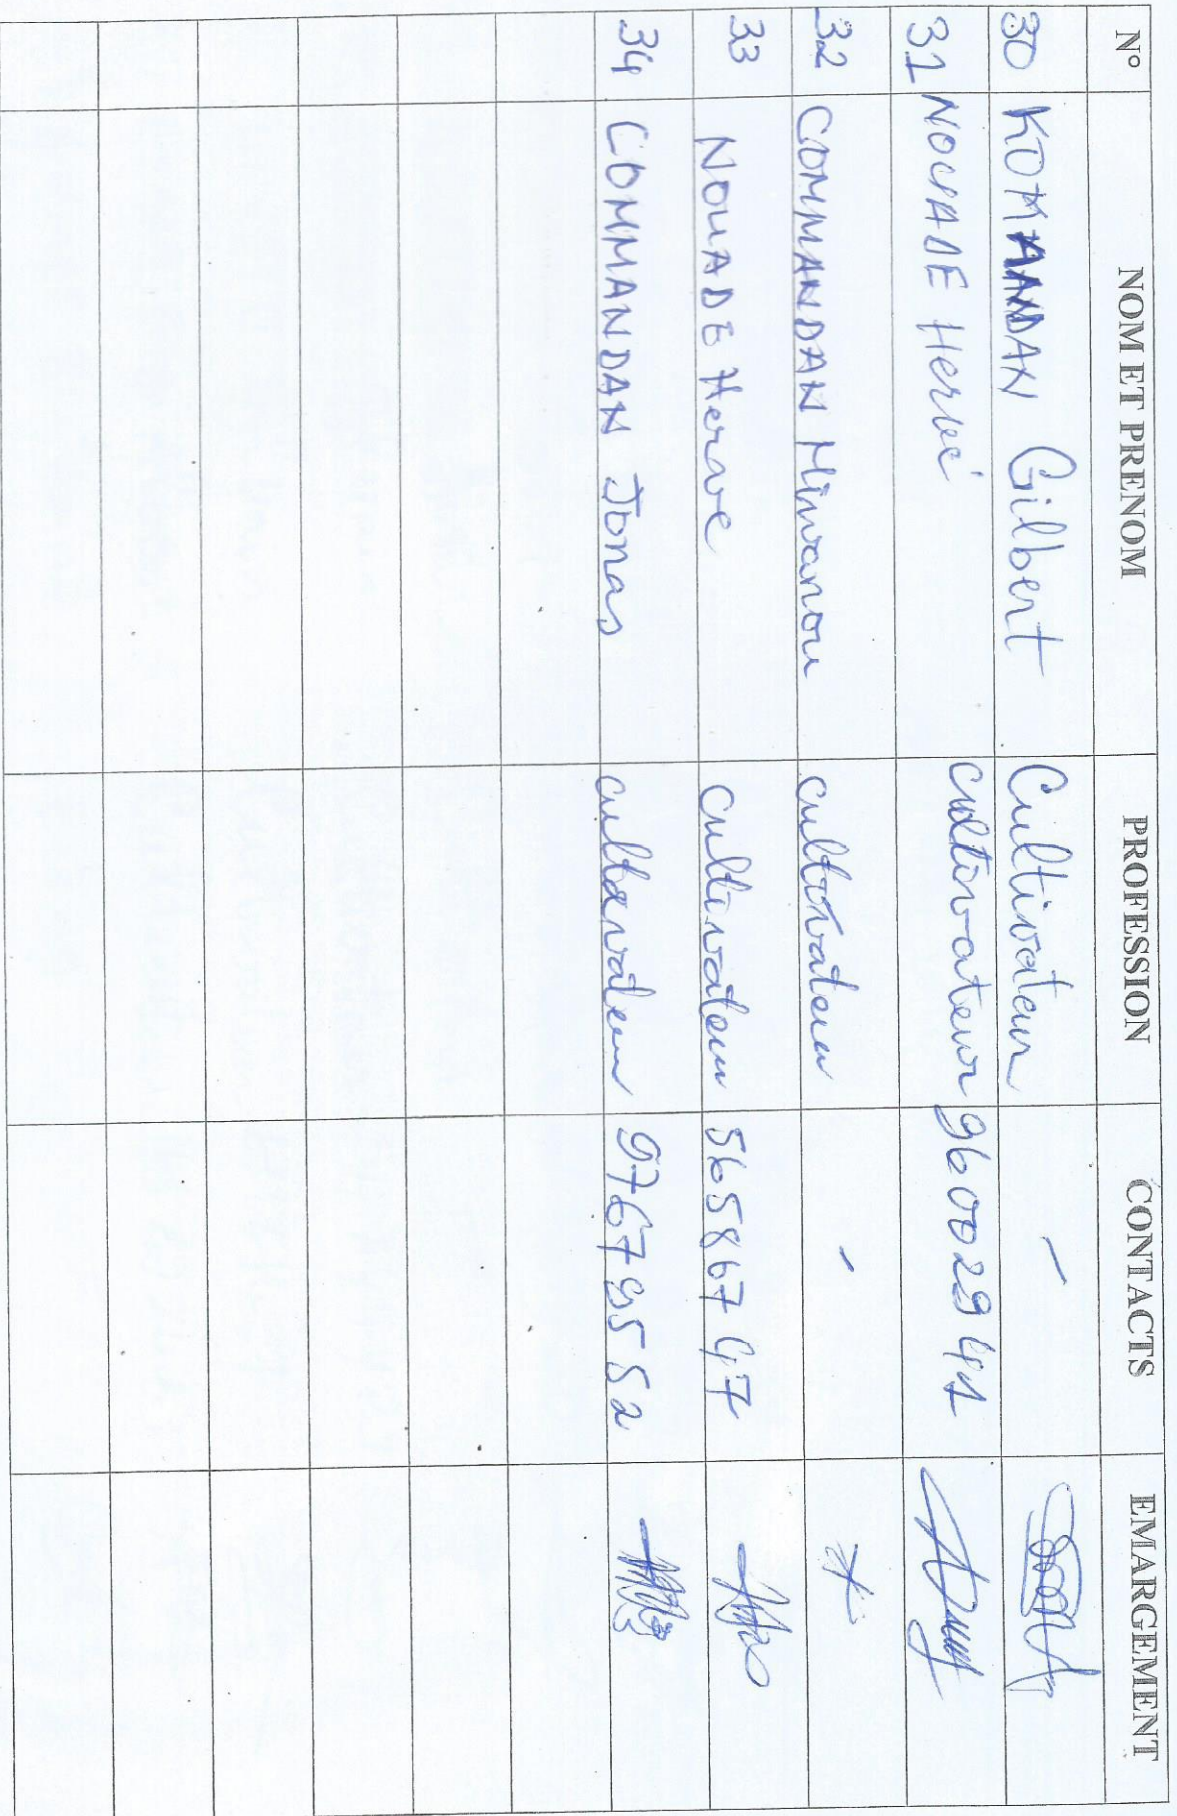 N° NOM ET PRENOM PROFESSION CONTACTS EMARGEMENT
30 KOMANDAN Gilbert Cultivateur -
31 NOUADE Hervé cultivateur 96002941
32 COMMANDAN Minvanou cultivateur -
33 NOUADE Herave cultivateur 56586747
34 COMMANDAN Jonas cultivateur 97679552